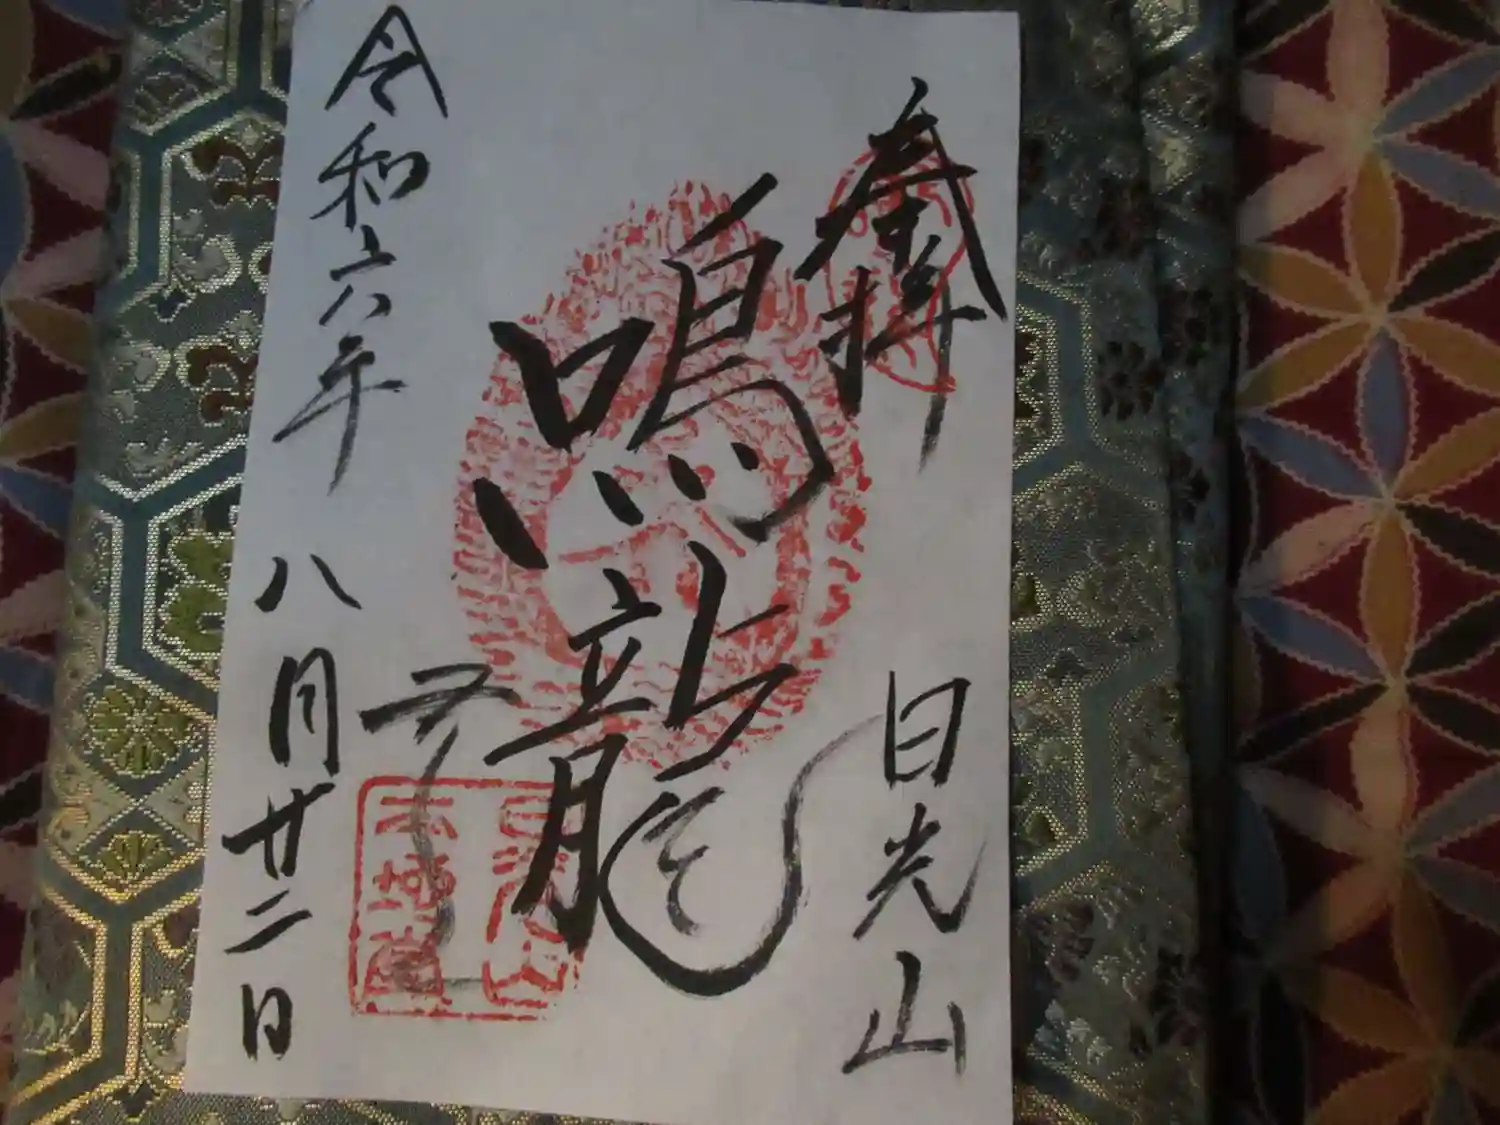 奉拝
日光山
鳴龍
令和六年
八月廿二日